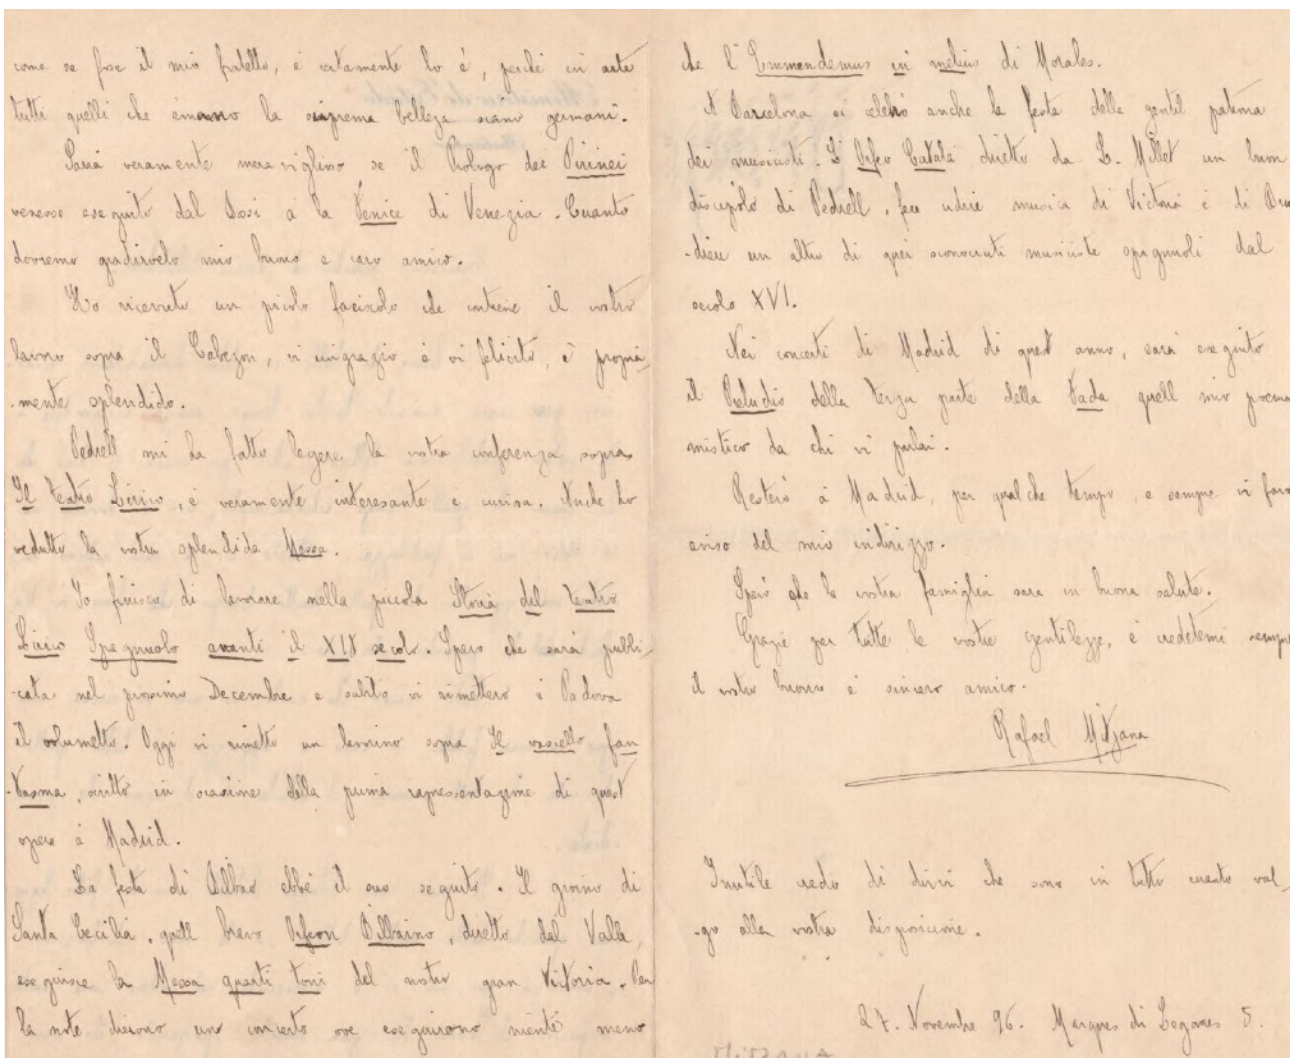 come se fose il mio fratello, é certamente lo é, perché in arte
tutti quelli che émano la suprema belleza siamo germani.
Sará veramente meraviglioso se il Prologo dei Pirinei
venesse eseguito dal Bosi á la Fenice di Venezia. Cuanto
dovremo gradirvelo mio buono e caro amico.
Ho ricevuto un picolo fascicolo che contiene il vostro
lavoro sopra il Cabezon, vi ringrazio é vi felicito, é propria
-mente splendido.
Pedrell mi ha fatto legere la vostra conferenza sopra
Il Teatro Lirico, é veramente interesante é curiosa. Anche ho
vedutto la vostra splendida Messa.
Io finisco di lavorare nella piccola Storia del Teatro
Lirico Spagnuolo avanti il XIX secolo. Spero che sará pubbli-
-cata nel prossimo Decembre e subito vi rimetteró á Padova
il volumetto. Oggi vi rimetto un lavorino sopra Il vascello fan
-tasma, scritto in ocasione della prima rapresentazione di quest
opera á Madrid.
La festa di Bilbao ebbé il suo seguito. Il giorno di
Santa Cecilia, quell bravo Orfeon Bilbaino, diretto dal Valle,
eseguisce la Messa quarti toni del nostro gran Victoria. Per
la note diedono un concerto ove eseguirono niente meno
che l'Emmendemus in melius di Morales.
A Barcelona si celebró anche la festa della gentil patrona
dei musicisti. L'Orfeo Catalá diretto da L. Millet un buon
discipolo di Pedrell, fece udire musica di Victoria é di Bru
-dieu un altro di quei sconosciuti musiciste spagnuoli dal
secolo XVI.
Nei concerti di Madrid di quest anno, sará eseguito
il Preludio della terza parte della Fada quell mio poema
mistico da chi vi parlai.
Resteró á Madrid, per qualche tempo, e sempre vi faro
aviso del mio indirizzo.
Speró che la vostra famiglia sara in buona salute.
Grazie per tutte le vostre gentilezze, é credetemi sempre
il vostro buono é sincero amico.
Rafael Mitjana
Inutile credo di dirvi che sono in tutto cuanto val-
-go alla vostra disposicione.
27. Novembre 96. Marques de Leganes 5.
MITJANA